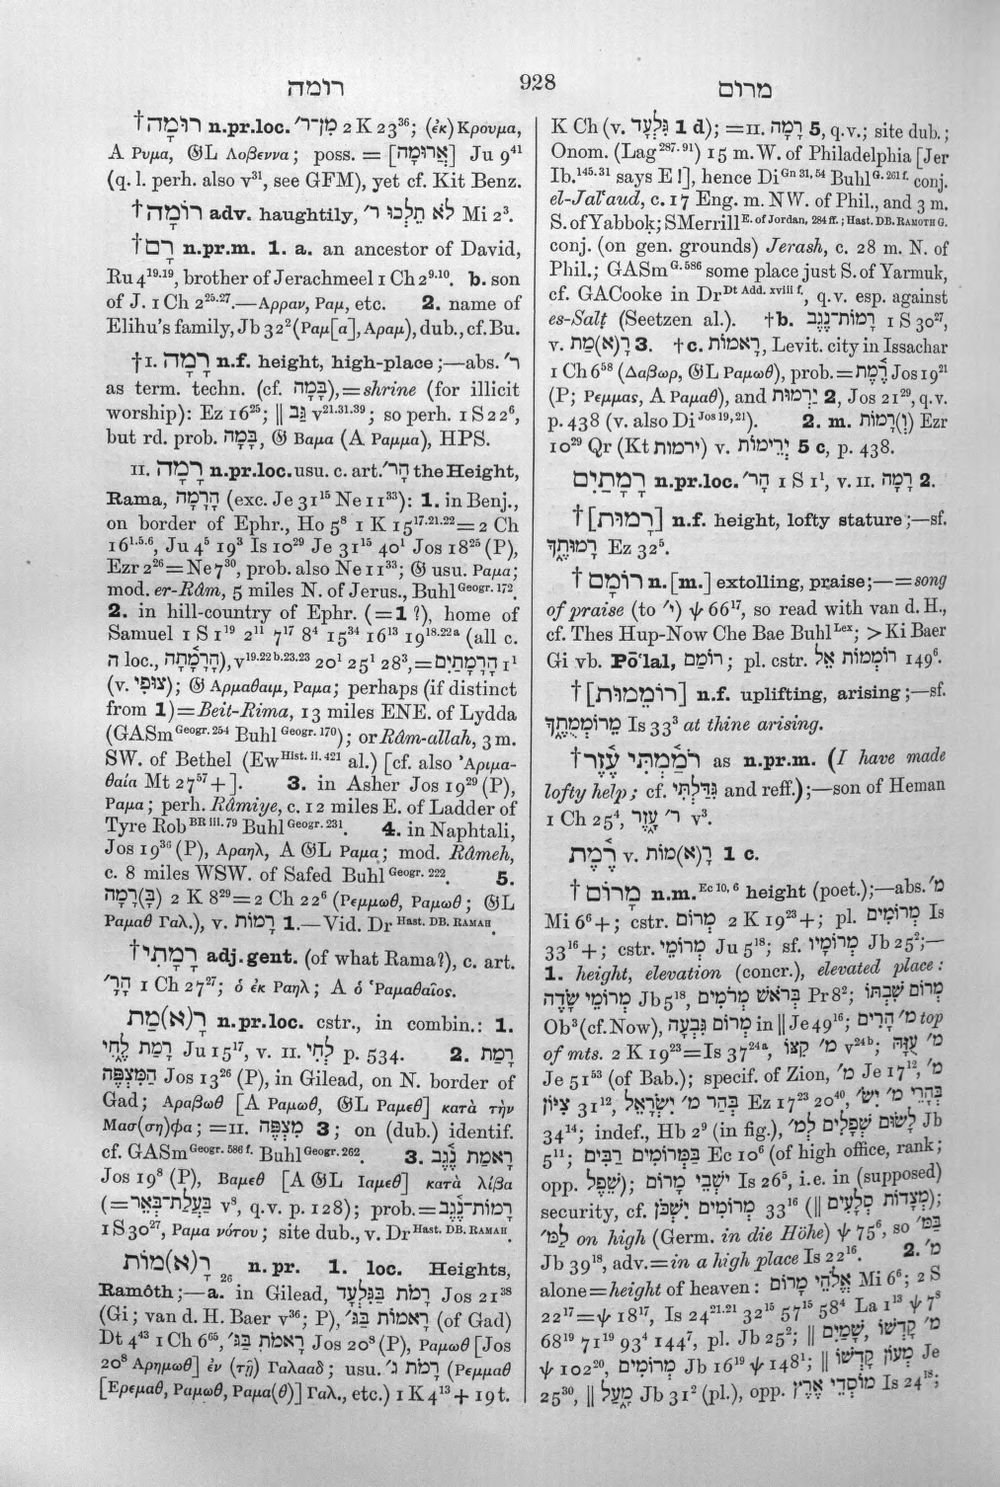 רומה 928 מרום
†רוּמָה n.pr.loc. מִן־ר׳ 2 K 23³⁶; (ἐκ) Κρουμα,
A Ρυμα, 𝔊L Λοβεννα; poss. = [אֲרוּמָה] Ju 9⁴¹
(q. l. perh. also v³¹, see GFM), yet cf. Kit Benz.
†רוֹמָה adv. haughtily, לֹא תֵלְכוּ ר׳ Mi 2³.
†רָם n.pr.m. 1. a. an ancestor of David,
Ru 4¹⁹·¹⁹, brother of Jerachmeel 1 Ch 2⁹·¹⁰. b. son
of J. 1 Ch 2²⁵·²⁷.—Αρραν, Ραμ, etc. 2. name of
Elihu's family, Jb 32² (Ραμ[α], Αραμ), dub., cf. Bu.
†I. רָמָה n.f. height, high-place;—abs. ר׳
as term. techn. (cf. בָּמָה), = shrine (for illicit
worship): Ez 16²⁵; ‖ גַּב v²¹·³¹·³⁹; so perh. 1 S 22⁶,
but rd. prob. בָּמָה, 𝔊 Βαμα (A Ραμμα), HPS.
II. רָמָה n.pr.loc. usu. c. art. הָר׳ the Height,
Rama, הָרָמָה (exc. Je 31¹⁵ Ne 11³³): 1. in Benj.,
on border of Ephr., Ho 5⁸ 1 K 15¹⁷·²¹·²² = 2 Ch
16¹·⁵·⁶, Ju 4⁵ 19³ Is 10²⁹ Je 31¹⁵ 40¹ Jos 18²⁵ (P),
Ezr 2²⁶ = Ne 7³⁰, prob. also Ne 11³³; 𝔊 usu. Ραμα;
mod. er-Râm, 5 miles N. of Jerus., Buhl Geogr. 172.
2. in hill-country of Ephr. (= 1 ?), home of
Samuel 1 S 1¹⁹ 2¹¹ 7¹⁷ 8⁴ 15³⁴ 16¹³ 19¹⁸·²²ᵃ (all c.
ה loc., הָרָמָ֫תָה), v¹⁹·²²ᵇ·²³·²³ 20¹ 25¹ 28³, = הָרָמָתַיִם 1¹
(v. צוּפִי׳); 𝔊 Αρμαθαιμ, Ραμα; perhaps (if distinct
from 1) = Beit-Rima, 13 miles ENE. of Lydda
(GASm Geogr. 254 Buhl Geogr. 170); or Râm-allah, 3 m.
SW. of Bethel (Ew Hist. ii. 421 al.) [cf. also Ἀριμα-
θαία Mt 27⁵⁷ +]. 3. in Asher Jos 19²⁹ (P),
Ραμα; perh. Râmiye, c. 12 miles E. of Ladder of
Tyre Rob BR iii. 79 Buhl Geogr. 231. 4. in Naphtali,
Jos 19³⁶ (P), Αραηλ, A 𝔊L Ραμα; mod. Râmeh,
c. 8 miles WSW. of Safed Buhl Geogr. 222. 5.
(בָּ)רָמָה 2 K 8²⁹ = 2 Ch 22⁶ (Ρεμμωθ, Ραμωθ; 𝔊L
Ραμαθ Γαλ.), v. רָמוֹת 1.—Vid. Dr Hast. DB. RAMAH.
†רָמָתִי adj.gent. (of what Rama?), c. art.
הָר׳ 1 Ch 27²⁷; ὁ ἐκ Ραηλ; A ὁ Ῥαμαθαῖος.
רָ(א)מַת n.pr.loc. cstr., in combin.: 1.
רָמַת לֶ֫חִי Ju 15¹⁷, v. II. לְחִי p. 534. 2. רָמַת
הַמִּצְפֶּה Jos 13²⁶ (P), in Gilead, on N. border of
Gad; Αραβωθ [A Ραμωθ, 𝔊L Ραμεθ] κατὰ τὴν
Μασ(ση)φα; = II. מִצְפֶּה 3; on (dub.) identif.
cf. GASm Geogr. 586 f. Buhl Geogr. 262. 3. רָאמַת נֶ֫גֶב
Jos 19⁸ (P), Βαμεθ [A 𝔊L Ιαμεθ] κατὰ λίβα
(= בַּעֲלַת־בְּאֵר v⁸, q.v. p. 128); prob. = רָמוֹת־נֶ֫גֶב
1 S 30²⁷, Ραμα νότου; site dub., v. Dr Hast. DB. RAMAH.
רָ(א)מוֹת ₂₆ n. pr. 1. loc. Heights,
Ramôth;—a. in Gilead, רָמֹת בַּגִּלְעָד Jos 21³⁸
(Gi; van d. H. Baer v³⁶; P), רָאמוֹת בַּגּ׳ (of Gad)
Dt 4⁴³ 1 Ch 6⁶⁵, רָאמֹת בַּגּ׳ Jos 20⁸ (P), Ραμωθ [Jos
20⁸ Αρημωθ] ἐν (τῇ) Γαλααδ; usu. רָמֹת ג׳ (Ρεμμαθ
[Ερεμαθ, Ραμωθ, Ραμα(θ)] Γαλ., etc.) 1 K 4¹³ + 19 t.
K Ch (v. גִּלְעָד 1 d); = II. רָמָה 5, q.v.; site dub.;
Onom. (Lag 287. 91) 15 m. W. of Philadelphia [Jer
Ib. 145. 31 says E !], hence Di Gn 31, 54 Buhl G. 261 f. conj.
el-Jal‘aud, c. 17 Eng. m. NW. of Phil., and 3 m.
S. of Yabboḳ; SMerrill E. of Jordan, 284 ff.; Hast. DB. RAMOTH G.
conj. (on gen. grounds) Jerash, c. 28 m. N. of
Phil.; GASm G. 586 some place just S. of Yarmuk,
cf. GACooke in Dr Dt Add. xviii f., q.v. esp. against
es-Salṭ (Seetzen al.). †b. רָמוֹת־נֶגֶב 1 S 30²⁷,
v. רָ(א)מַת 3. †c. רָאמוֹת, Levit. city in Issachar
1 Ch 6⁵⁸ (Δαβωρ, 𝔊L Ραμωθ), prob. = רֶ֫מֶת Jos 19²¹
(P; Ρεμμας, A Ραμαθ), and יַרְמוּת 2, Jos 21²⁹, q.v.
p. 438 (v. also Di Jos 19, 21). 2. m. (וְ)רָמוֹת Ezr
10²⁹ Qr (Kt ירמות) v. יְרֵימוֹת 5 c, p. 438.
רָמָתַיִם n.pr.loc. הָר׳ 1 S 1¹, v. II. רָמָה 2.
†[רָמוּת] n.f. height, lofty stature;—sf.
רָמוּתֶ֑ךָ Ez 32⁵.
†רוֹמָם n.[m.] extolling, praise;—= song
of praise (to י׳) ψ 66¹⁷, so read with van d. H.,
cf. Thes Hup-Now Che Bae Buhl Lex; > Ki Baer
Gi vb. Pō‘lal, רוֹמַם; pl. cstr. רוֹמְמוֹת אֵל 149⁶.
†[רוֹמֵמוּת] n.f. uplifting, arising;—sf.
מֵרוֹמְמֻתֶ֑ךָ Is 33³ at thine arising.
†רֹמַ֫מְתִּי עֶ֫זֶר as n.pr.m. (I have made
lofty help; cf. גִּדַּלְתִּי and reff.);—son of Heman
1 Ch 25⁴, ר׳ עָ֑זֶר v³.
רֶ֫מֶת v. רָ(א)מוֹת 1 c.
†מָרוֹם n.m. Ec 10, 6 height (poet.);—abs. מ׳
Mi 6⁶ +; cstr. מְרוֹם 2 K 19²³ +; pl. מְרוֹמִים Is
33¹⁶ +; cstr. מְרוֹמֵי Ju 5¹⁸; sf. מְרוֹמָיו Jb 25²;—
1. height, elevation (concr.), elevated place:
מְרוֹמֵי שָׂדֶה Jb 5¹⁸, בְּרֹאשׁ מְרֹמִים Pr 8²; מְרוֹם שִׁבְתּוֹ
Ob³ (cf. Now), מְרוֹם גִּבְעָה in ‖ Je 49¹⁶; מ׳ הָרִים top
of mts. 2 K 19²³ = Is 37²⁴ᵃ, מ׳ קִצּוֹ v²⁴ᵇ; מ׳ עֻזָּהּ
Je 51⁵³ (of Bab.); specif. of Zion, מ׳ Je 17¹², מ׳
צִיּוֹן 31¹², בְּהַר מ׳ יִשְׂרָאֵל Ez 17²³ 20⁴⁰, בְּהָרֵי מ׳ יִשׂ׳
34¹⁴; indef., Hb 2⁹ (in fig.), לָשׂוּם שְׁפָלִים לְמ׳ Jb
5¹¹; בַּמְּרוֹמִים רַבִּים Ec 10⁶ (of high office, rank;
opp. שֵׁפֶל); יֹשְׁבֵי מָרוֹם Is 26⁵, i.e. in (supposed)
security, cf. מְרוֹמִים יִשְׁכֹּן 33¹⁶ (‖ מְצָדוֹת סְלָעִים);
לַמ׳ on high (Germ. in die Höhe) ψ 75⁶, so בַּמּ׳
Jb 39¹⁸, adv. = in a high place Is 22¹⁶. 2. מ׳
alone = height of heaven: אֱלֹהֵי מָרוֹם Mi 6⁶; 2 S
22¹⁷ = ψ 18¹⁷, Is 24²¹·²¹ 32¹⁵ 57¹⁵ 58⁴ La 1¹³ ψ 7⁸
68¹⁹ 71¹⁹ 93⁴ 144⁷, pl. Jb 25²; ‖ שָׁמַיִם, מ׳ קָדְשׁוֹ
ψ 102²⁰, מְרוֹמִים Jb 16¹⁹ ψ 148¹; ‖ מְעוֹן קָדְשׁוֹ Je
25³⁰, ‖ מַ֫עַל Jb 31² (pl.), opp. מוֹסְדֵי אֶרֶץ Is 24¹⁸;